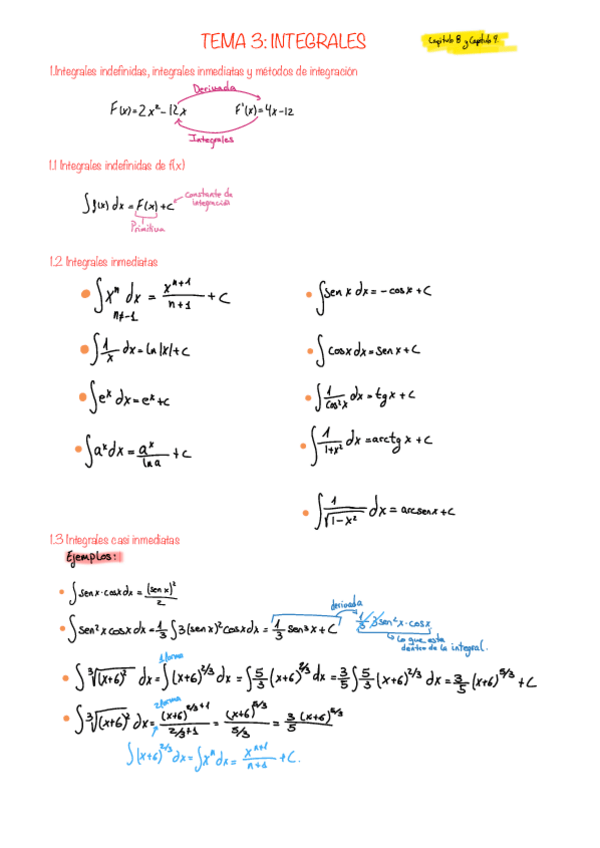 TEMA 3: INTEGRALES
Capitulo 8 y Capitulo 9.
1.Integrales indefinidas, integrales inmediatas y métodos de integración
Derivada
F(x)=2x²-12x F'(x)=4x-12
Integrales
1.1 Integrales indefinidas de f(x)
∫f(x) dx = F(x)+C
Constante de integración
Primitiva
1.2 Integrales inmediatas
• ∫xⁿ dx = xⁿ⁺¹/n+1 + C
n≠-1
• ∫sen x dx = -cos x + C
• ∫1/x dx = ln|x|+C
• ∫cosx dx = sen x + C
• ∫eˣ dx = eˣ+c
• ∫1/cos²x dx = tg x + C
• ∫aˣ dx = aˣ/ln a + C
• ∫1/1+x² dx = arctg x + C
• ∫1/√1-x² dx = arcsenx + C
1.3 Integrales casi inmediatas
Ejemplos:
• ∫senx·cosx dx = (sen x)²/2
derivada
• ∫sen²x cosx dx = 1/3 ∫3(senx)² cosx dx = 1/3 sen³x + C 1/3·3sen²x·cosx
Lo que esta dentro de la integral.
1forma
• ∫³√(x+6)² dx = ∫(x+6)^2/3 dx = ∫5/3 (x+6)^2/3 dx = 3/5 ∫5/3 (x+6)^2/3 dx = 3/5 (x+6)^5/3 + C
2forma
• ∫³√(x+6)² dx = (x+6)^2/3+1/2/3+1 = (x+6)^5/3/5/3 = 3/5 (x+6)^5/3
∫(x+6)^2/3 dx = ∫xⁿ dx = xⁿ⁺¹/n+1 + C.